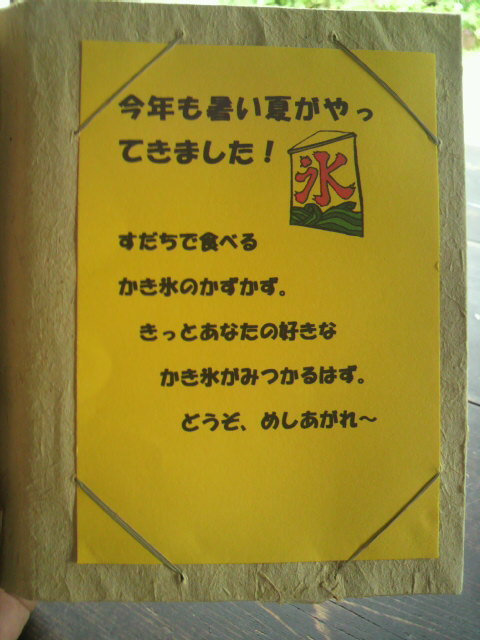 今年も暑い夏がやっ
てきました！
氷
すだちで食べる
かき氷のかずかず。
きっとあなたの好きな
かき氷がみつかるはず。
どうぞ、めしあがれ～